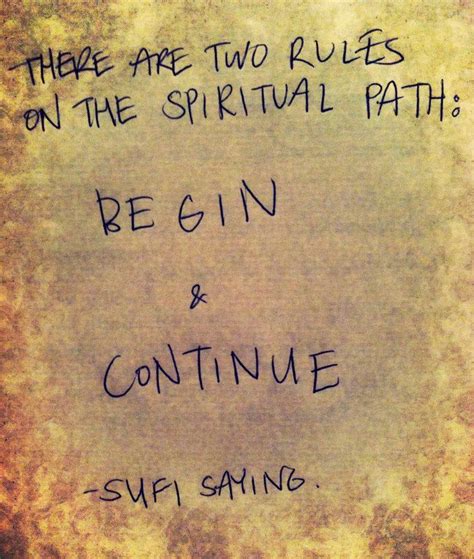 THERE ARE TWO RULES
ON THE SPIRITUAL PATH:
BEGIN
&
CONTINUE
-SUFI SAYING.